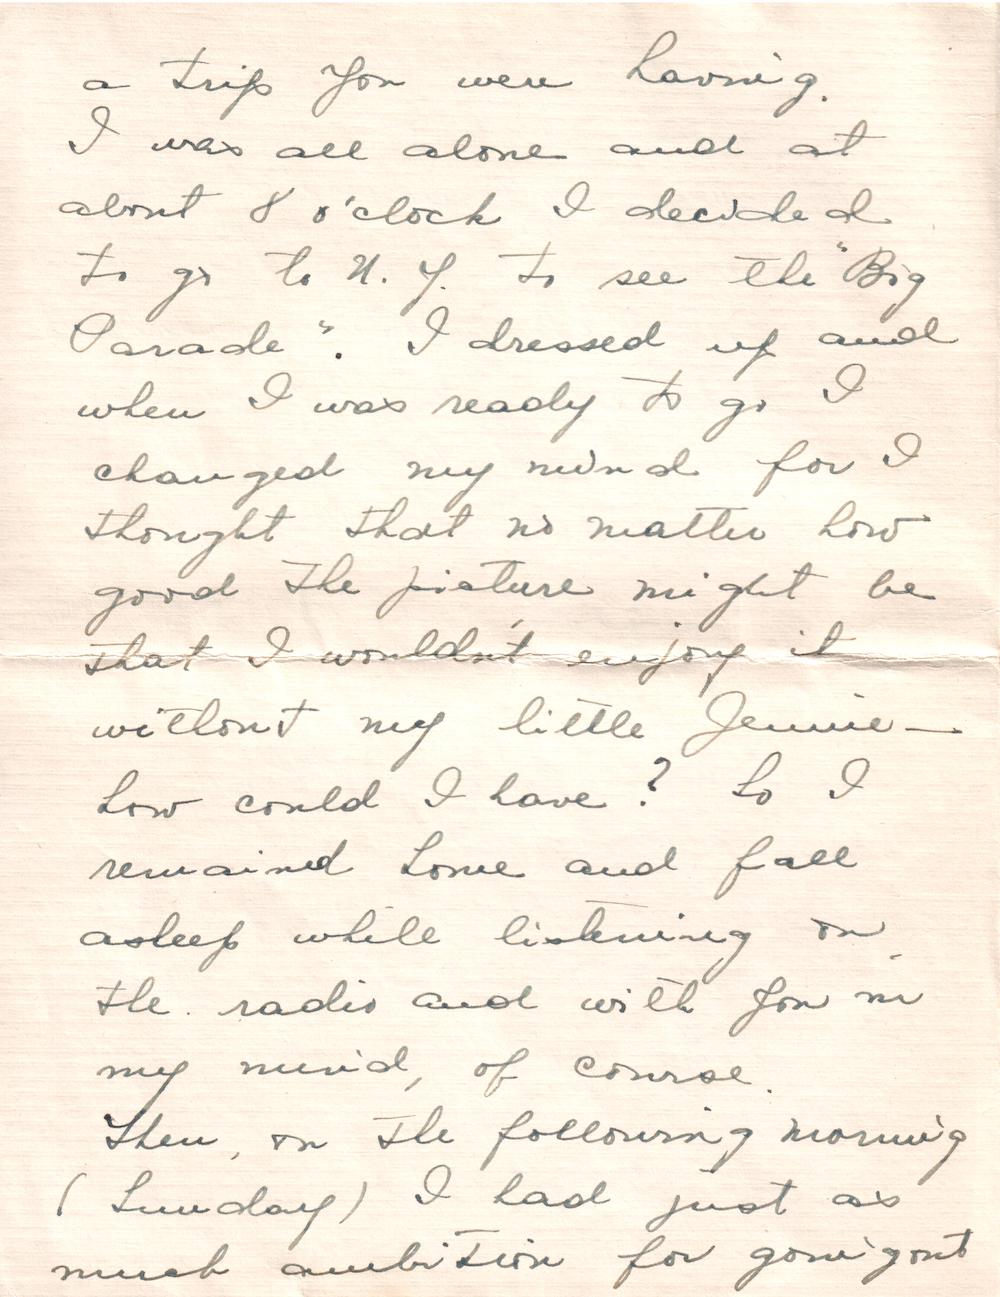 a trip you were having.
I was all alone and at
about 8 o'clock I decided
to go to N. Y. to see the "Big
Parade". I dressed up and
when I was ready to go I
changed my mind for I
thought that no matter how
good the picture might be
that I wouldn't enjoy it
without my little Jennie —
how could I have? So I
remained home and fall
asleep while listening on
the radio and with you in
my mind, of course.
Then, on the following morning
(Sunday) I had just as
much ambition for going out